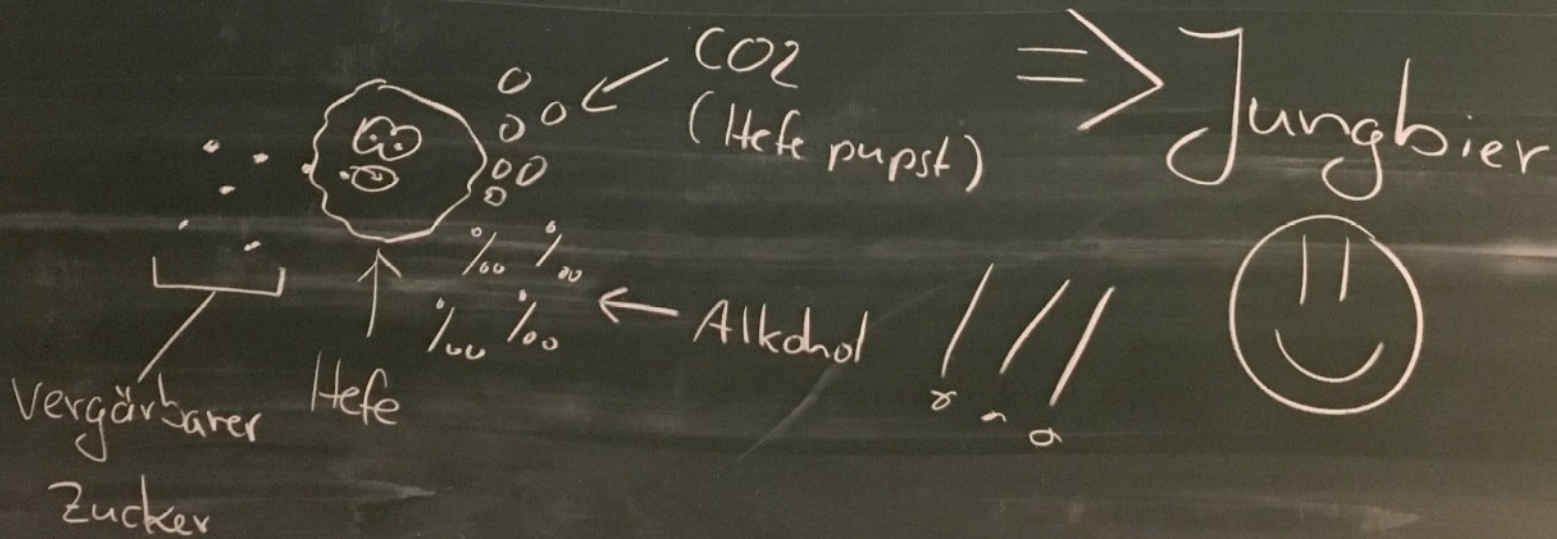 CO2
(Hefe pupst)
=> Jungbier
‰ ‰
‰ ‰
← Alkohol !!!
Hefe
Vergärbarer
Zucker